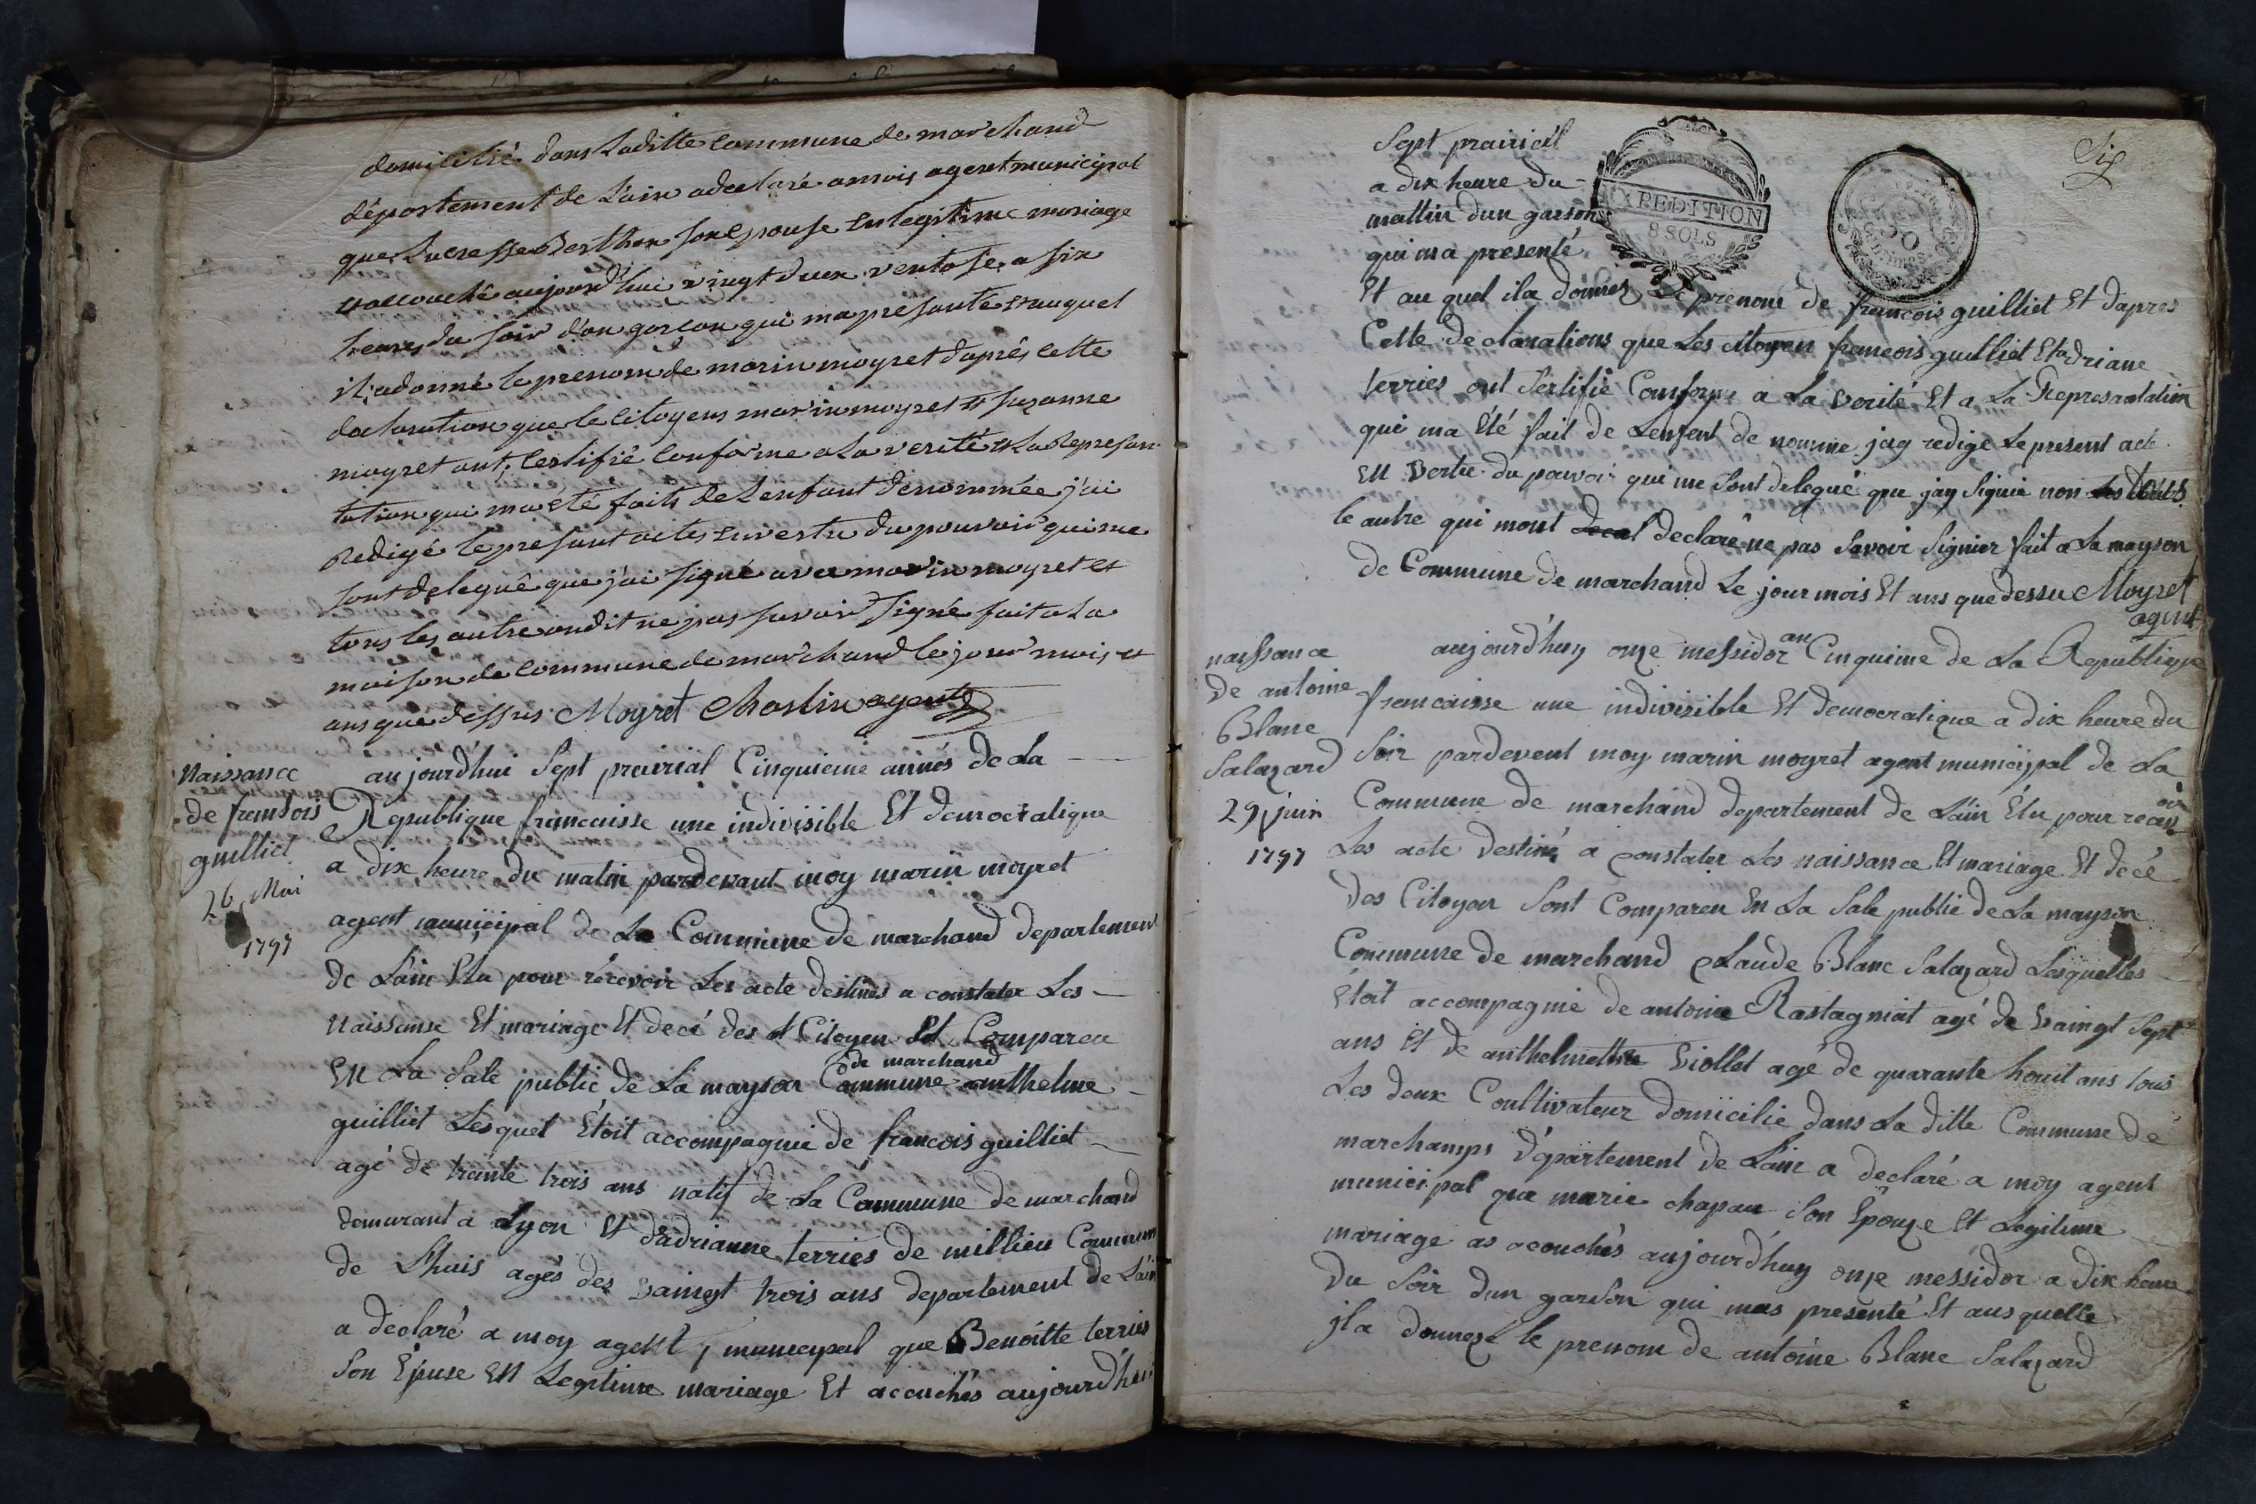 domicilié dans Laditte Commune de marchand
département de L'ain a declaré a mois agent municipal
que Lucresse Berthon son Epouse En legitime mariage
et accouché aujourd'hui vingt deux ventose a six
heures du soir d'un garcon qui ma presanté et auquel
il adonné le prenom de marin moyret daprès cette
declaration que le Citoyens marin moyret et suzanne
moyret ont Certifié Conforme a La verité et La Represan
tation qui ma eté faits de L'enfant denommée j'ai
Redigé le presant actes En vertu du pouvoir qui me
sont delegué que j'ai signé avec marin moyret et
tous les autre ondit ne pas savoir signé fait a La
maison de Commune de marchand le jour mois et
ans que dessus Moyret Charlin agent
Naissance
de fransois
guilliet
26 Mai
1797
aujourd'hui Sept preirial Cinquieme annés de La
Republique francaisse une indivisible Et democratique
a dix heure du matin pardevant moy marin moyret
agent municipal de La Commune de marchand departement
de L'ain Elu pour récevoir Les acte destinés a constater Les
Naissanse Et mariage Et decé des Citoyen Et Compareu
de marchand
En La Sale public de La mayson Commune anthelme
guilliet Lesquel Étoit accompagnie de francois guilliet
agé de trante trois ans natif de La Commune de marchand
demurant a Lyon Et dadrianne terries de millieu Commune
de Lhuis agés des vaingt trois ans departement de L'ain
a declaré a moy agent municypal que Benoitte terries
Son Épuse En Legitime mariage Et acouchés aujourd'hui
Six
EXPEDITION
8 SOLS
50
Sept prairiel
a dix heure du
mattin dun garson
qui ma presenté
Et au quel il a donnés Le prenom de francois guilliet Et dapres
Cette declarations que Les citoyen francois guilliet Et adriane
terries ont Sertifié Comforme a La verité Et a La Represantation
qui ma Été fait de Lenfent de nomme jay redige Le present acte
En vertu du pouvoir qui me Sont delegué que jay Signie non Les
le autre qui mont decal declaré ne pas Savoir Signier fait a La mayson
de Commune de marchand Le jour mois Et ans que dessu Moyret
agent
naissance
de antoine
Blanc
Salazard
29 juin
1797
aujourd'huy onze messidor an Cinquime de La Republique
francaisse une indivisible Et democratique a dix heure du
Soir pardevent moy marin moyret agent municipal de La
Commune de marchand departement de L'ain Élu pour recevoir
Les acte destiné a constater Les naissance Et mariage Et decé
des Citoyen Sont Compareu En La Sale public de La mayson
Commune de marchand Claude Blanc Salazard Lesquelles
Étoit accompagnié de antoine Rastagniat agé de vaingt Sept
ans Et de anthelmette Viollet agé de quarante houit ans tous
Les deux Coultivateur domicilié dans La ditte Commune de
marchamps département de L'ain a declaré a moy agent
municipal que marie chapau Son Épouze Et Legitime
mariage as acouchés aujourd'huy onze messidor a dix heure
du Soir dun garson qui mas presenté Et aus quelle
jl a donnez le prenom de antoine Blanc Salazard